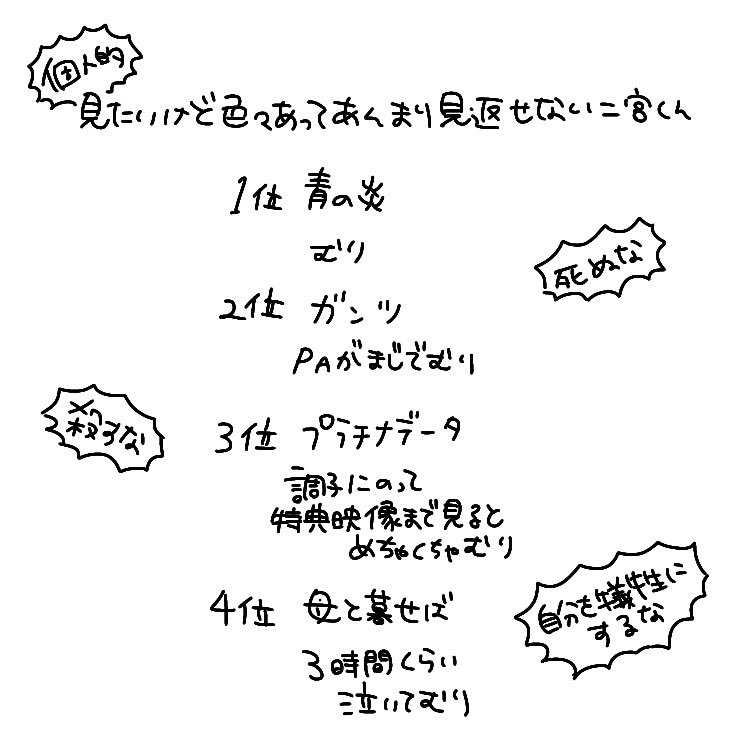 個人的
見たいけど色々あってあんまり見返せない二宮くん
1位 青の炎
むり
死ぬな
2位 ガンツ
PAがまじでむり
殺るな
3位 プラチナデータ
調子にのって
特典映像まで見ると
めちゃくちゃむり
自分を犠牲に
するな
4位 母と暮せば
3時間くらい
泣いてむり